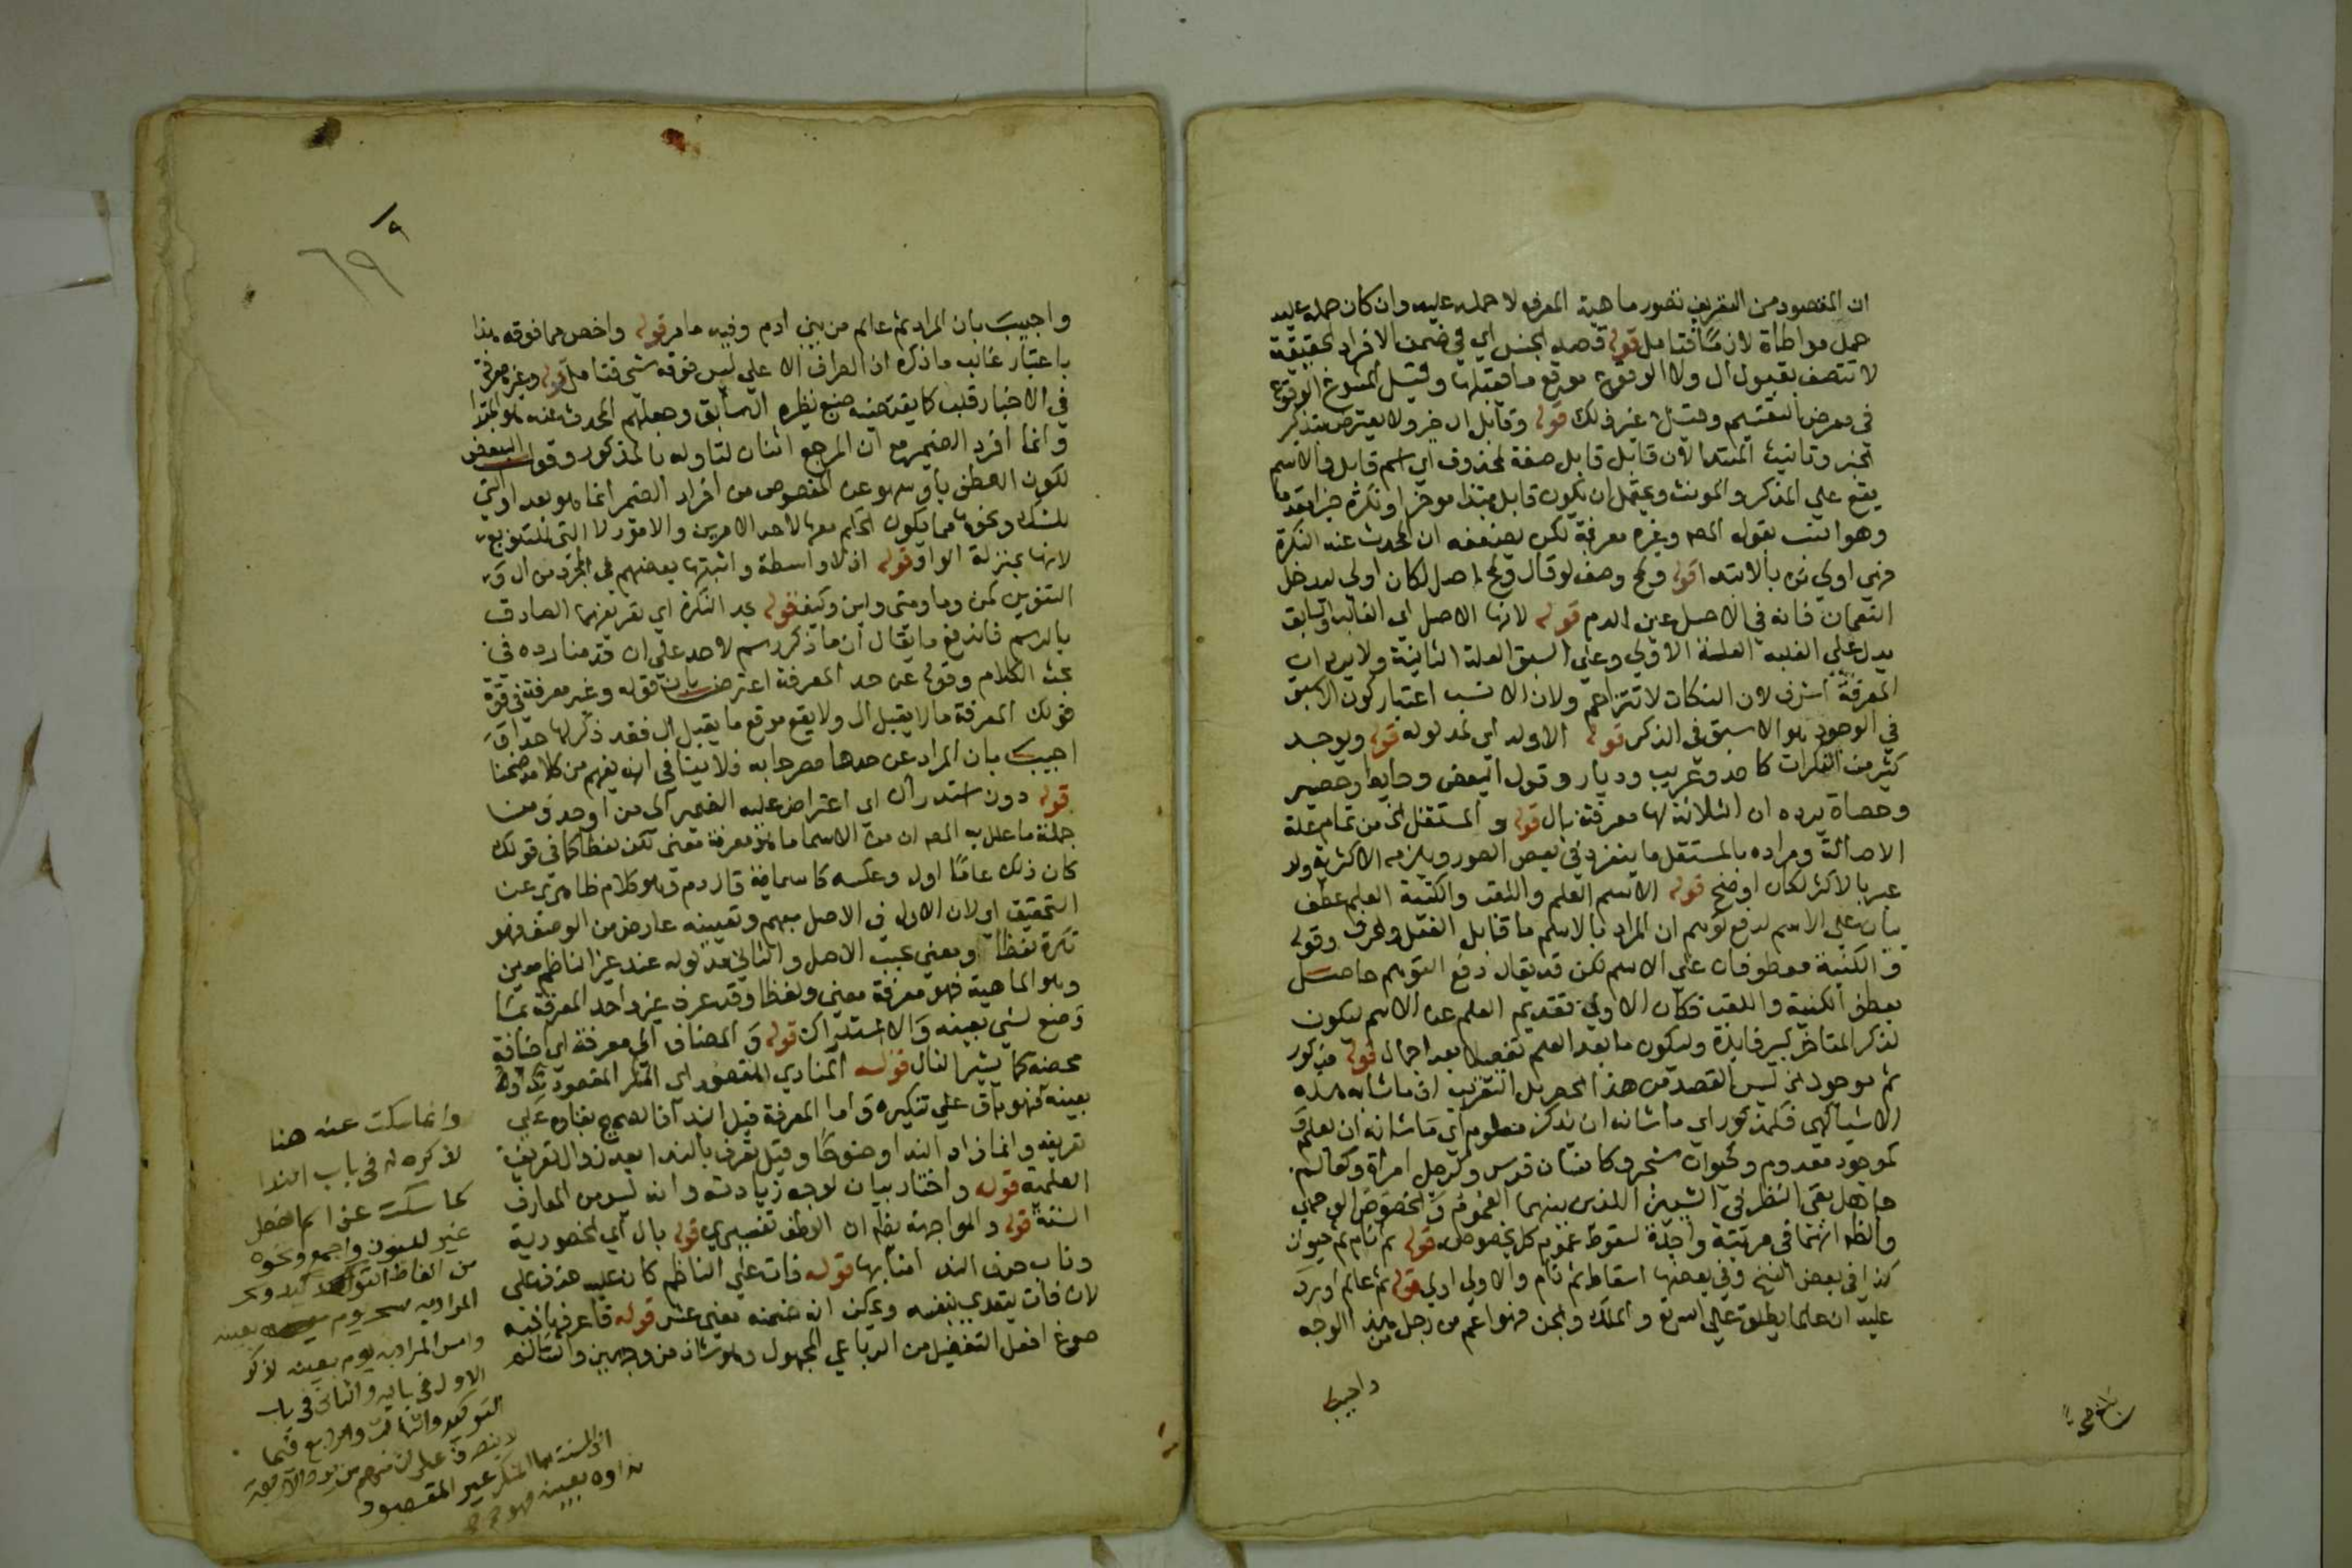 ان المقصود من التعريف تصور ماهية المعرف لا حمله عليه وان كان حمله عليه
حمل مواطاة لازما فتامل قوله قصد الجنس اي في ضمن الافراد الحقيقة
لا تتصف بقبول ال ولا الوقوع موقع ما يقبلها وقيل المسوغ الوقوع
في معرض التقسيم وقيل غير ذلك قوله وقابل ال خبر ولا يعترض بتذكير
الخبر وتانيث المبتدا لان قابل صفة لمحذوف اي اسم قابل والاسم
يقع على المذكر والمونث ويحتمل ان يكون قابل مبتدا موخرا ونكرة خبرا مقدما
وهو انسب بقوله المص وغيره معرفة لكن يضعفه ان المحدث عنه النكرة
فهي اولي بالابتدا قوله ولمح وصف لو قال ولمح اصل لكان اولي ليدخل
النعمان فانه في الاصل عين الدم قوله لانها الاصل اي الغالب والسابق
يدل علي الغلبة العلة الاولي وعلي السبق العلة الثانية ولا يرد ان
المعرفة اشرف لان النكات لا تتزاحم ولان الانسب اعتبار كون الاسبق
في الوجود هو الاسبق في الذكر قوله الاوله اي مدلوله قوله ويوجد
كثير من النكرات كاحد وعريب وديار وقول البعض وحايط وحصير
وحصاة يرده ان الثلاثة لها معرفة بال قوله والمستقل الخ من تمام علة
الاصالة ومراده بالمستقل ما ينفرد في بعض الصور ويلزمه الاكثرية ولو
عبر بالاكثر لكان اوضح قوله الاسم العلم واللقب والكنية العلم عطف
بيان علي الاسم لدفع توهم ان المراد بالاسم ما قابل الفعل والحرف وقوله
والكنية معطوفان علي الاسم لكن قد يقال دفع التوهم حاصل
بعطف الكنية واللقب فكان الاولي تقديم العلم عن الاسم ليكون
لذكر المتاخر كبير فايدة وليكون ما بعد العلم تفصيلا بعد اجمال قوله مذكور
ثم موجود الخ ليس القصد من هذا الحصر بل التقريب اذ ما شابه هذه
الاشيا كهي فكمذكور اي ما شانه ان يذكر معلوم اي ما شانه ان يعلم و
كموجود معدوم وكحيوان شجر وكانسان فرس وكرجل امراة وكعالم
جاهل بقي النظر في الشيئين اللذين بينهما العموم والخصوص الوجهي
والظ انهما في مرتبة واحدة لسقوط عموم كل بخصوصه قوله ثم نام ثم حيوان
كذا في بعض النسخ وفي بعضها اسقاط ثم نام والاولي اولي قوله ثم عالم اورد
عليه ان عالما يطلق على الله تع والملك والجن فهو اعم من رجل من هذا الوجه
واجيب
بلغ
واجيب بان المراد ثم عالم من بني ادم وفيه ما مر قوله واخص مما فوقه هذا
باعتبار غالب ما ذكره اذ الطرف الاعلي ليس فوقه شي فتامل قوله وغيره معرفة
في الاخبار قلب كما يقتضيه صنيع نظيره السابق وجعلهم المحدث عنه هو المبتدا
وانما افرد الضمير مع ان المرجع اثنان لتاوله بالمذكور وقول البعض
لكون العطف باو سهو عن المخصوص من افراد الضمير انما هو بعد او التي
للشك ونحوه مما يكون الحكم معها لاحد الامرين والامور لا التي للتنويع
لانها بمنزلة الواو قوله اذ لا واسطة واثبتها بعضهم في المجرد من ال و
التنوين كمن وما ومتي واين وكيف قوله بحد النكرة اي تعريفها الصادق
بالرسم فاندفع ما يقال ان ما ذكره رسم لا حد علي ان قدمنا رده في
بحث الكلام وقوله عن حد المعرفة اعترض بان قوله وغيره معرفة في قوة
قولك المعرفة ما لا يقبل ال ولا يقع موقع ما يقبل ال فقد ذكر لها حدا و
اجيب بان المراد عن حدها مصرحا به فلا ينافي انه يفهم من كلامه ضمنا
قوله دون استدراك اي اعتراض عليه الضمير الى من او حد ومن
جملة ما علل به المص ان من الاسما ما هو معرفة معني نكرة لفظا كما في قولك
كان ذلك عاما اول وعكسه كاسامة قال دم وهو كلام ظاهري عن
التحقيق اي لان الاول في الاصل مبهم وتعيينه عارض من الوصف فهو
نكرة لفظا ومعني بحسب الاصل والثاني مدلوله عند غير الناظم معين
وهو الماهية فهو معرفة معني ولفظا وقد عرف غير واحد المعرفة بما
وضع لشي بعينه والاستدراك قوله والمضاف الي معرفة اي اضافة
محضة كما يشير المثال قوله المنادي المقصود اي المنكر المقصود نداوه
بعينه فهو باق علي تنكيره واما المعرفة قبل الندا فالصحيح بقاوه علي
تعريفه وانما زاد الندا وضوحا وقيل تعرف بالندا بعد زوال تعريف
العلمية قوله واختار بيان لوجه زيادته وانه ليس من المعارف
الستة قوله والمواجهة يظ ان العطف تفسيري قوله بال اي الحضورية
وناب حرف الندا منابها قوله فات علي الناظم كان عليه حذف علي
لان فات يتعدي بنفسه ويمكن انه ضمنه معني عسر قوله فاعرفها فيه
صوغ افعل التفضيل من الرباعي المجهول وهو شاذ من وجهين
وانما سكت عنه هنا
لذكره له في باب الندا
كما سكت عن اسم الفعل
غير المنون واجمع ونحوه
من الفاظ التوكيد وسحر
المراد به سحر يوم بعينه
وامس المراد به يوم بعينه لذكر
الاول في بابه والثاني في باب
التوكيد والثالث والرابع فيما
لا ينصرف
المنكر غير المقصود
نداوه بعينه فهو
٦٩